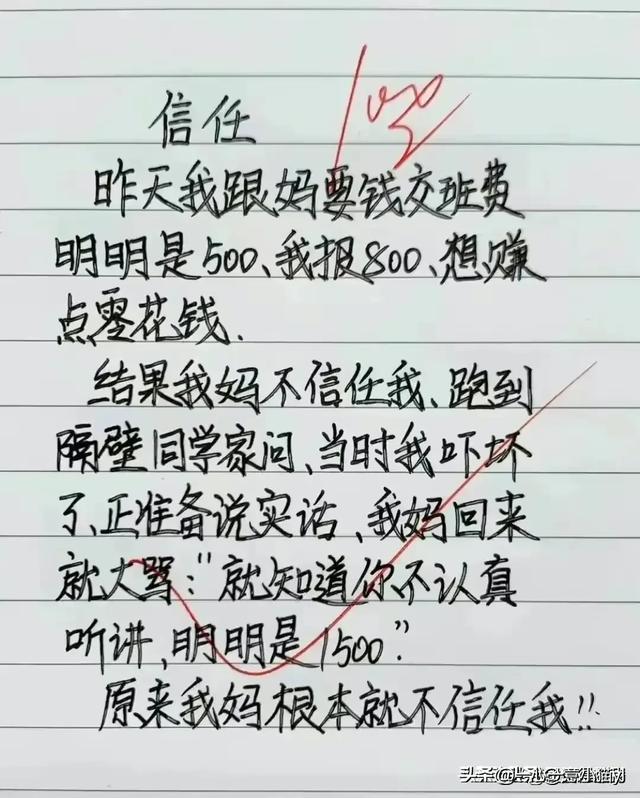 信任
100
昨天我跟妈要钱交班费
明明是500、我报800、想赚
点零花钱.
结果我妈不信任我、跑到
隔壁同学家问、当时我吓坏
了、正准备说实话、我妈回来
就大骂:"就知道你不认真
听讲,明明是1500".
原来我妈根本就不信任我!!